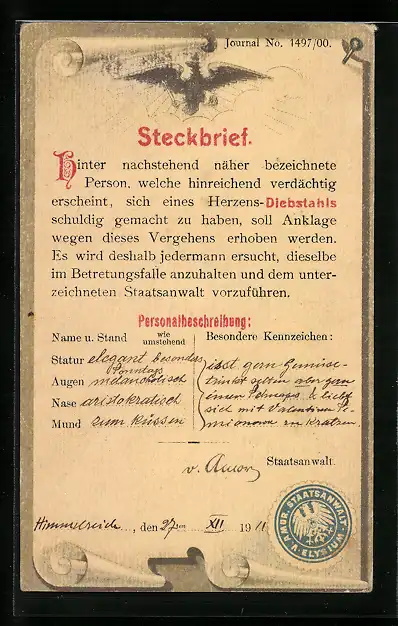 Journal No. 1497/00.
Steckbrief.
Hinter nachstehend näher bezeichnete
Person, welche hinreichend verdächtig
erscheint, sich eines Herzens-Diebstahls
schuldig gemacht zu haben, soll Anklage
wegen dieses Vergehens erhoben werden.
Es wird deshalb jedermann ersucht, dieselbe
im Betretungsfalle anzuhalten und dem unter-
zeichneten Staatsanwalt vorzuführen.
Personalbeschreibung:
Name u. Stand wie umstehend
Statur elegant besonders
Sonntags
Augen melancholisch
Nase aristokratisch
Mund zum küssen
Besondere Kennzeichen:
isst gern Gemüse
trinkt selten aber gern
einen Schnaps & liebt
sich mit
zu kratzen.
v. Amor
Staatsanwalt.
Himmelreich, den 27ten XII 1911
V. AMOR. STAATSANWALT.
ELYSIUM